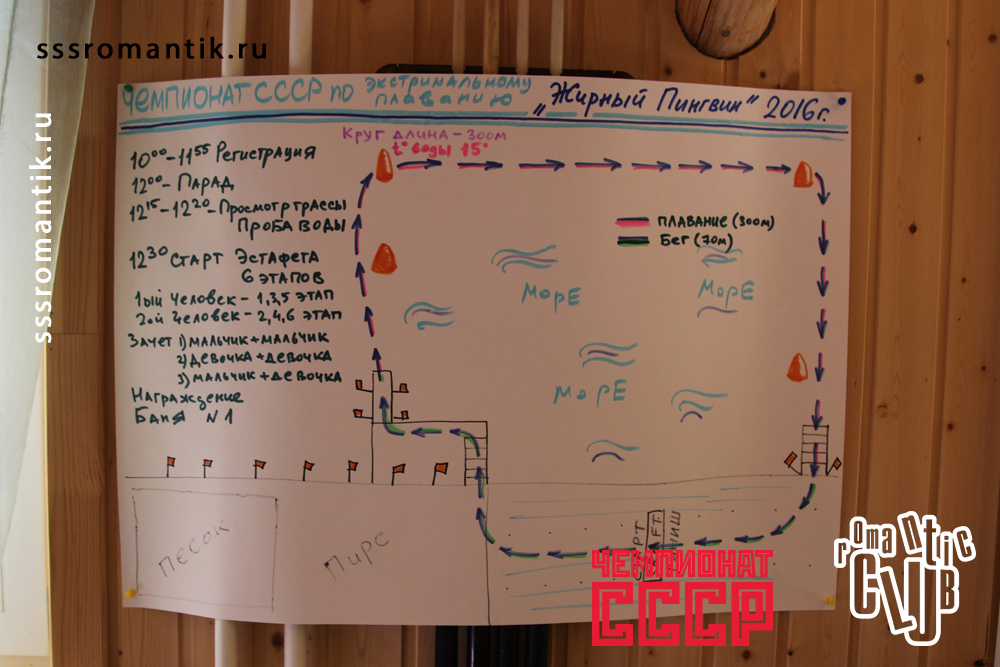 sssromantik.ru
sssromantik.ru
ЧЕМПИОНАТ СССР ПО ЭКСТРИМАЛЬНОМУ ПЛАВАНИЮ „Жирный Пингвин" 2016г.
Круг длина - 300м
t° воды 15°
10⁰⁰-11⁵⁵ Регистрация
12⁰⁰ - Парад
12¹⁵-12²⁰-Просмотр трассы
Проба воды
12³⁰ старт Эстафета
6 этапов
1ый человек - 1,3,5 этап
2ой человек - 2,4,6 этап
Зачет 1) мальчик + мальчик
2) девочка + девочка
3) мальчик + девочка
Награждение
Баня N1
плавание (300м)
Бег (70м)
Море
Море
Море
Песок
Пирс
ЧЕМПИОНАТ
СССР
romantic
CLUB